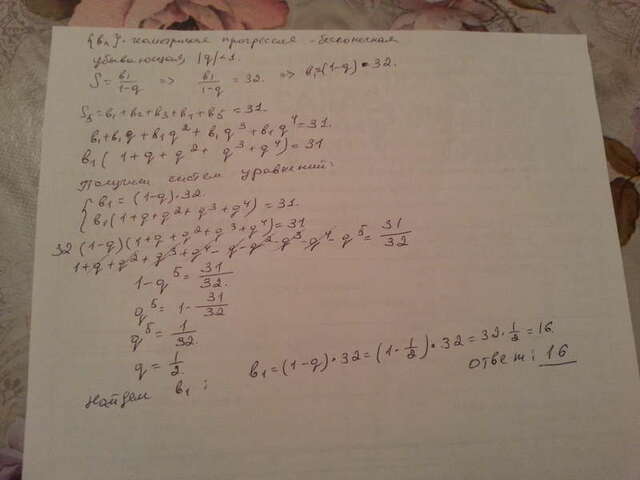 {bn} - геометрическая прогрессия - бесконечная
убывающая, |q|<1.
S = b₁/(1-q) => b₁/(1-q) = 32. => b₁=(1-q)•32.
S₅ = b₁+b₂+b₃+b₄+b₅ = 31.
b₁+b₁q+b₁q²+b₁q³+b₁q⁴=31.
b₁(1+q+q²+q³+q⁴)=31
Получим систем уравнений:
{ b₁=(1-q)·32.
b₁(1+q+q²+q³+q⁴)=31.
32(1-q)(1+q+q²+q³+q⁴)=31
1+q+q²+q³+q⁴-q-q²-q³-q⁴-q⁵=31/32
1-q⁵=31/32.
q⁵=1-31/32
q⁵=1/32.
q=1/2.
Найдем b₁: b₁=(1-q)•32=(1-1/2)•32=32·1/2=16.
ответ: 16